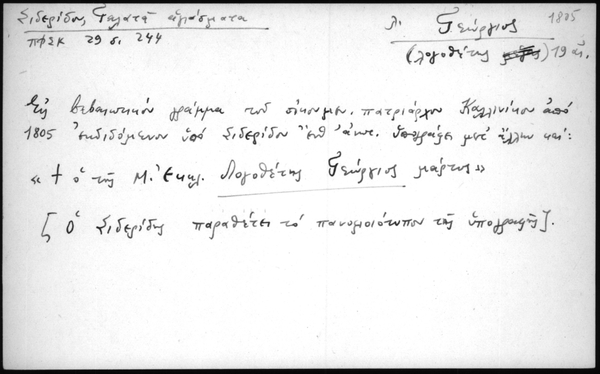 Σιδερίδου, Γαλατᾶ ἁγιάσματα
ΠΦΣΚ 29 σ. 244
λ. Γεώργιος 1805
(λογοθέτης) 19 αἰ.
Εἰς βεβαιωτικόν γράμμα τοῦ οἰκουμεν. πατριάρχου Καλλινίκου ἀπό
1805 ἐκδιδόμενον ὑπό Σιδερίδου ὑπογράφει μετ' ἄλλων καί:
« † ὁ τῆς Μ. Ἐκκλ. Λογοθέτης Γεώργιος μάρτυς »
[Ὁ Σιδερίδης παραθέτει τό πανομοιότυπον τῆς ὑπογραφῆς].